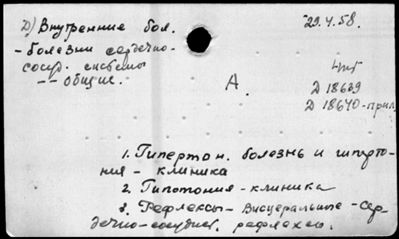 Д) Внутренние бол.
- болезни сердечно-
сосуд. системы
-- общие.
29.4.58.
А.
Д 18639
Д 18640-прил.
1. Гипертон. болезнь и гиперто-
ния - клиника
2. Гипотония - клиника
3. Рефлексы - висцеральные - сер-
дечно-сосудист. рефлексы.